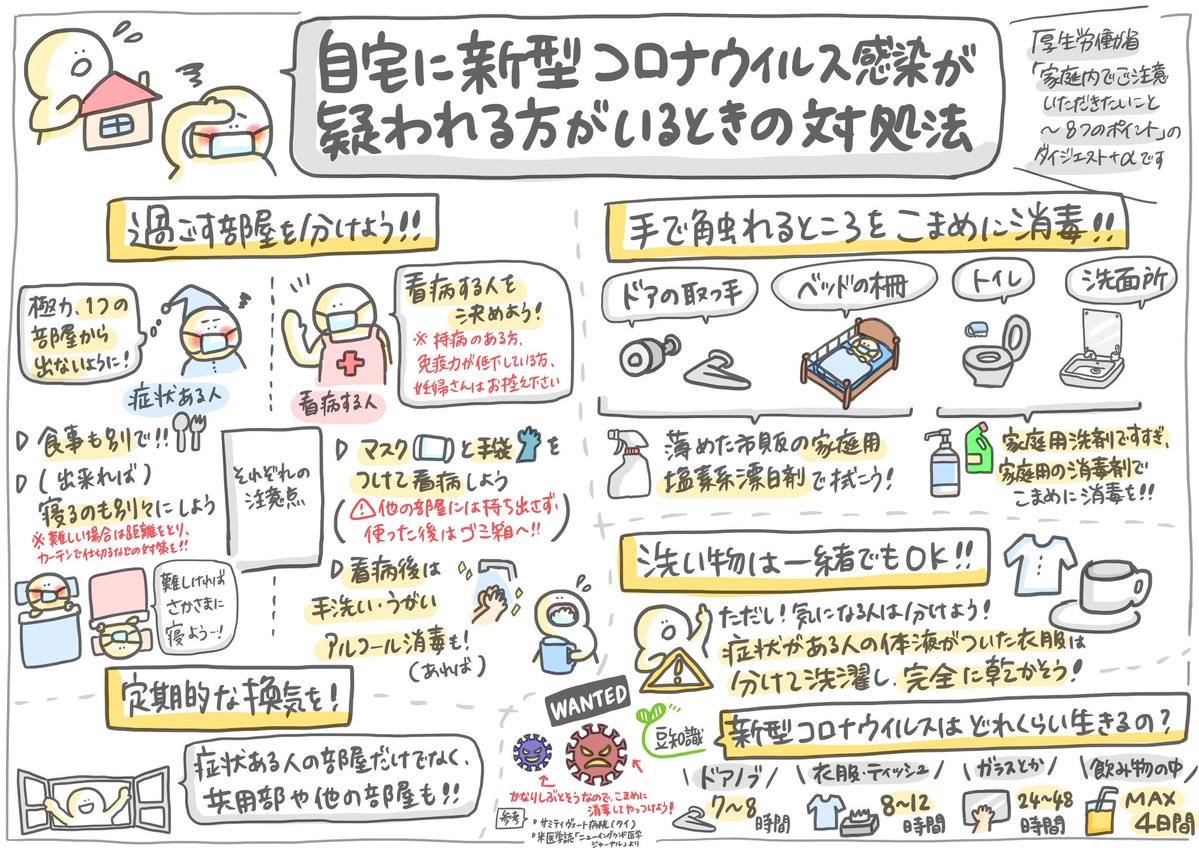 自宅に新型コロナウィルス感染が
疑われる方がいるときの対処法
「厚生労働省
「家庭内でご注意
いただきたいこと
～8つのポイント」の
ダイジェスト+αです
過ごす部屋を分けよう!!
極力、1つの
部屋から
出ないように!
症状ある人
看病する人
看病する人を
決めよう!
※持病のある方、
免疫力が低下している方、
妊婦さんはお控えください
食事も別で!!
(出来れば)
寝るのも別々にしよう
※難しい場合は距離をとり、
カーテンで仕切るなどの対策を!!
難しければ
さかさまに
寝よう…!
それぞれの
注意点
マスクと手袋を
つけて看病しよう
(他の部屋には持ち出さず、
使った後はゴミ箱へ!!)
看病後は
手洗い・うがい
アルコール消毒も!
(あれば)
定期的な換気を!
症状ある人の部屋だけでなく、
共用部や他の部屋も!!
手で触れるところをこまめに消毒!!
ドアの取っ手
ベッドの柵
トイレ
洗面所
薄めた市販の家庭用
塩素系漂白剤で拭こう!
家庭用洗剤ですすぎ、
家庭用の消毒剤で
こまめに消毒を!!
洗い物は一緒でもOK!!
ただし!気になる人は分けよう!
症状がある人の体液がついた衣服は
分けて洗濯し、完全に乾かそう!
WANTED
かなりしぶとそうなので、こまめに
消毒してやっつけよう!
豆知識
新型コロナウィルスはどれくらい生きるの?
ドアノブ
7～8
時間
衣服・ティッシュ
8～12
時間
ガラスとか
24～48
時間
飲み物の中
MAX
4日間
参考
サミティヴェート病院(タイ)
米医学誌「ニューイングランド医学
ジャーナル」より